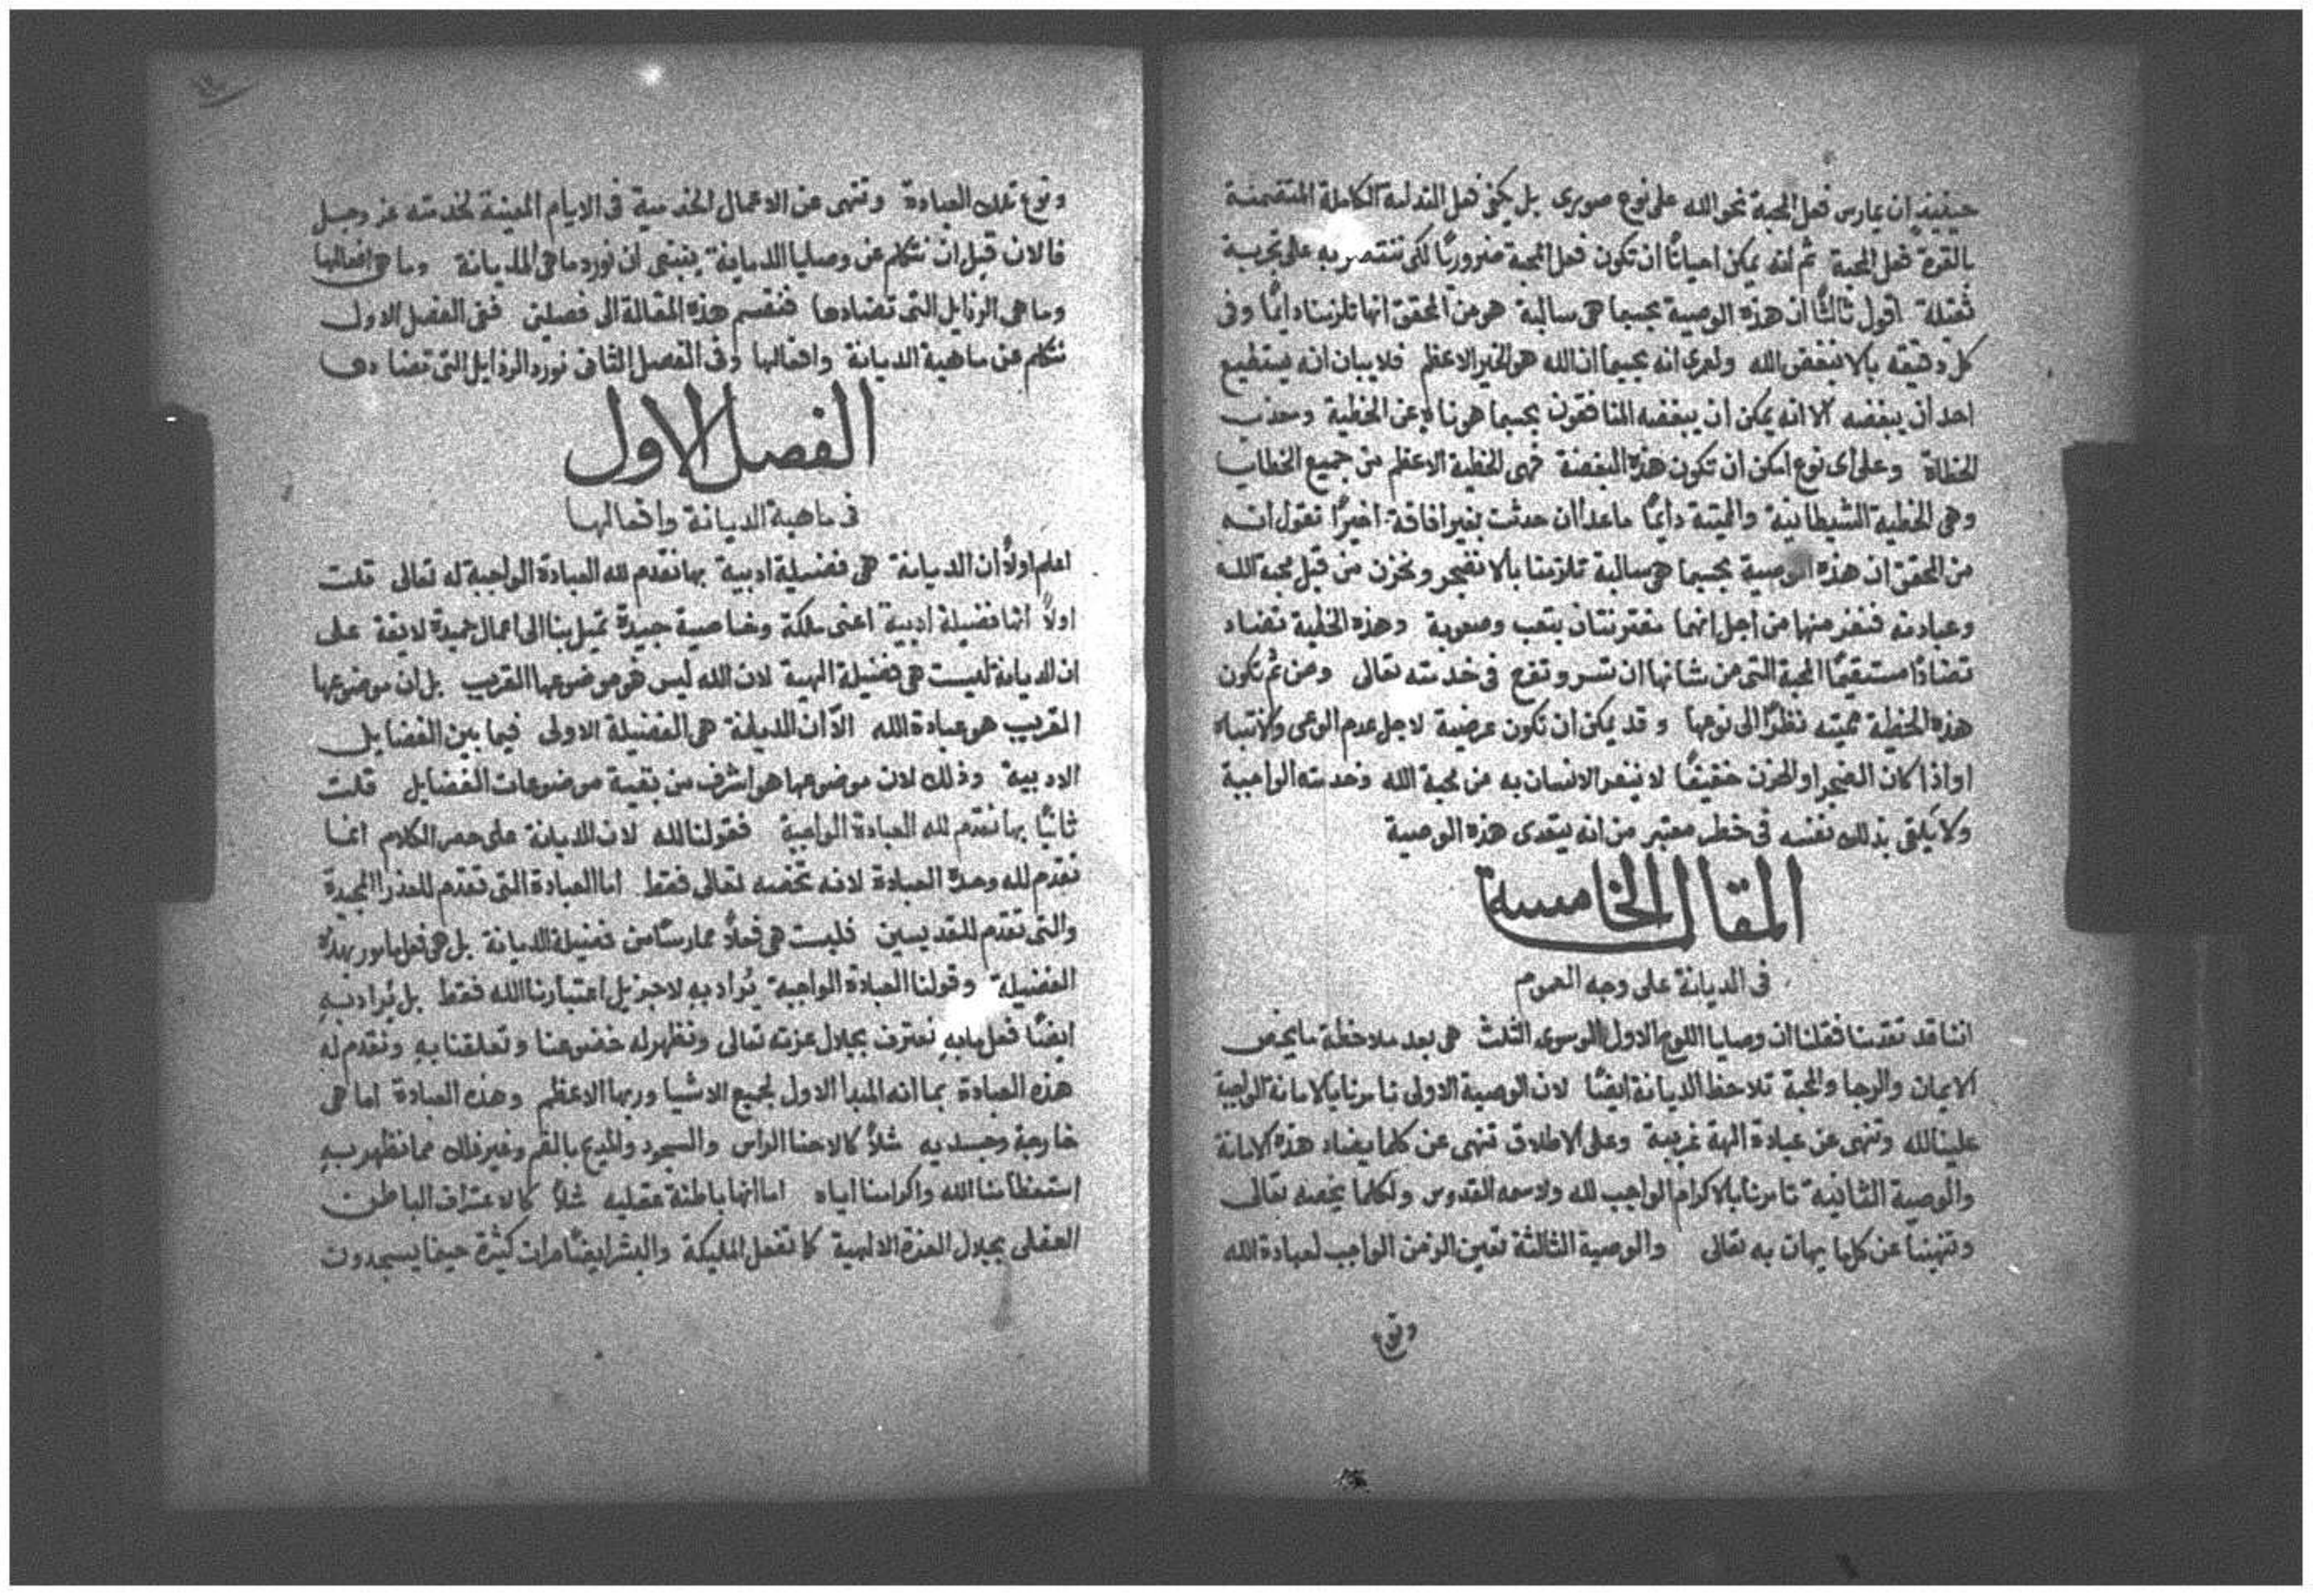 حينيذٍ ان يمارس فعل المحبة نحو الله على نوع صورى بل يكفى فعل الندامة الكاملة المتضمنة
بالقوة فعل المحبة ثم انه يمكن احيانًا ان تكون فعل المحبة ضروريًا لكى ننتصر به على تجربة
ثقيلة اقول ثالثًا ان هذه الوصية بحسبما هى سالبة هو من المحقق انها تلزمنا دايمًا وفى
كل دقيقه بالا نبغض الله ولعرى انه بحسبما ان الله هو الخير الاعظم فلا يبان انه يستطيع
احد ان يبغضه الا انه يمكن ان يبغضه المنافقون بحسبما هو ناهٍ عن الخطية ومعذب
الخطاة وعلى اى نوع امكن ان تكون هذه البغضة فهى الخطية الاعظم من جميع الخطايا
وهى الخطية الشيطانية والمميتة دايمًا ماعدا ان حدثت بغير افاقة اخيرًا نقول انه
من المحقق ان هذه الوصية بحسبما هى سالبة تلزمنا بالا نضجر ونحزن من قبل محبة الله
وعبادته فنفر منها من اجل انهما مقترنتان بتعب وصعوبة وهذه الخطية تضاد
تضادًا مستقيمًا المحبة التى من شانها ان تسر وتفرح فى خدمته تعالى ومن ثم تكون
هذه الخطية مميته نظرًا الى نوعها وقد يمكن ان تكون عرضية لاجل عدم الوعى والانتباه
او اذا كان الضجر او الحزن خفيفًا لا ينفر الانسان به من محبة الله وخدمته الواجبة
ولا يلقى بذلك نفسه فى خطر معتبر من انه يتعدى هذه الوصية
المقالة الخامسة
فى الديانة على وجه العموم
اننا قد تقدمنا فقلنا ان وصايا اللوح الاول الموسوى الثلث هى بعد ملاحظة ما يخص
الايمان والرجا والمحبة تلاحظ الديانة ايضًا لان الوصية الاولى تامرنا بالامانة الواجبة
علينا لله وتنهى عن عبادة الهة غريبة وعلى الاطلاق تنهى عن كلما يضاد هذه الامانة
والوصية الثانية تامرنا بالاكرام الواجب لله ولاسمه القدوس ولكلما يخصه تعالى
وتنهينا عن كلما يهان به تعالى والوصية الثالثة تعين الزمن الواجب لعبادة الله
ونوع
١٧
ونوع تلك العبادة وتنهى عن الاعمال الخدمية فى الايام المعينة لخدمته عز وجل
فالان قبل ان نتكلم عن وصايا الديانة ينبغى ان نورد ما هى الديانة وما هى افعالها
وما هى الرذايل التى تضادها فنقسم هذه المقالة الى فصلين ففى الفصل الاول
نتكلم عن ماهية الديانة وافعالها وفى الفصل الثانى نورد الرذايل التى تضادها
الفصل الاول
فى ماهية الديانة وافعالها
اعلم اولاً ان الديانة هى فضيلة ادبية بها نقدم لله العبادة الواجبة له تعالى قلت
اولاً انها فضيلة ادبية اعنى ملكة وخاصية جيدة تميل بنا الى اعمال حميدة لايقة على
ان الديانة ليست هى فضيلة الهية لان الله ليس هو موضوعها القريب بل ان موضوعها
القريب هو عبادة الله الّا ان الديانة هى الفضيلة الاولى فيما بين الفضايل
الادبية وذلك لان موضوعها هو اشرف من بقية موضوعات الفضايل قلت
ثانيًا بها نقدم لله العبادة الواجبة فقولنا لله لان الديانة على حصر الكلام انما
تقدم لله وحده العبادة لانه تخصه تعالى فقط اما العبادة التى تقدم للعذرا المجيدة
والتى تقدم للقديسين فليست هى فعلاً ممارسًا من فضيلة الديانة بل هى فعل مامور بهذه
الفضيلة وقولنا العبادة الواجبة يُراد بهِ لا جزيل اعتبارنا الله فقط بل يُراد بهِ
ايضًا فعل ما بهِ نعترف بجلال عزته تعالى ونظهر له خضوعنا وتعلقنا بهِ ونقدم له
هذه العبادة بما انه المبدا الاول لجميع الاشيا وربها الاعظم وهذه العبادة اما هى
خارجية وجسديه مثلاً كالاحنا الراس والسجود والمديح بالفم وغير ذلك مما نظهر بهِ
استعظامنا الله واكرامنا اياه اما انها باطنة عقليه مثلاً كالاعتراف الباطن
العقلى بجلال العزة الالهية كما تفعل المليكة والبشر ايضًا مرات كثيرة حينما يسجدون